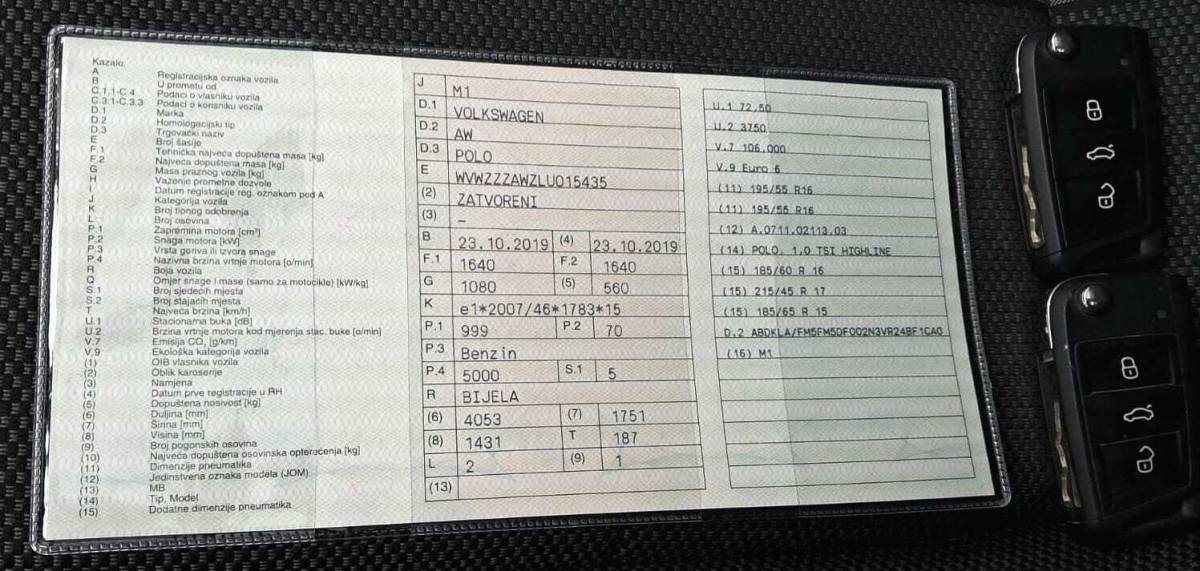 Kazalo:
A Registracijska oznaka vozila
B U prometu od
C.1.1-C.4 Podaci o vlasniku vozila
C.3.1-C.3.3 Podaci o korisniku vozila
D.1 Marka
D.2 Homologacijski tip
D.3 Trgovački naziv
E Broj šasije
F.1 Tehnička najveća dopuštena masa [kg]
F.2 Najveća dopuštena masa [kg]
G Masa praznog vozila [kg]
H Važenje prometne dozvole
I Datum registracije reg. oznakom pod A
J Kategorija vozila
K Broj tipnog odobrenja
L Broj osovina
P.1 Zapremina motora [cm³]
P.2 Snaga motora [kW]
P.3 Vrsta goriva ili izvora snage
P.4 Nazivna brzina vrtnje motora [o/min]
R Boja vozila
Q Omjer snage i mase (samo za motocikle) [kW/kg]
S.1 Broj sjedećih mjesta
S.2 Broj stajaćih mjesta
T Najveća brzina [km/h]
U.1 Stacionarna buka [dB]
U.2 Brzina vrtnje motora kod mjerenja stac. buke [o/min]
V.7 Emisija CO₂ [g/km]
V.9 Ekološka kategorija vozila
(1) OIB vlasnika vozila
(2) Oblik karoserije
(3) Namjena
(4) Datum prve registracije u RH
(5) Dopuštena nosivost [kg]
(6) Duljina [mm]
(7) Širina [mm]
(8) Visina [mm]
(9) Broj pogonskih osovina
(10) Najveća dopuštena osovinska opterećenja [kg]
(11) Dimenzije pneumatika
(12) Jedinstvena oznaka modela (JOM)
(13) MB
(14) Tip, Model
(15) Dodatne dimenzije pneumatika
J M1
D.1 VOLKSWAGEN
D.2 AW
D.3 POLO
E WVWZZZAWZLU015435
(2) ZATVORENI
(3) –
B 23.10.2019 (4) 23.10.2019
F.1 1640 F.2 1640
G 1080 (5) 560
K e1*2007/46*1783*15
P.1 999 P.2 70
P.3 Benzin
P.4 5000 S.1 5
R BIJELA
(6) 4053 (7) 1751
(8) 1431 T 187
L 2 (9) 1
(13)
U.1 72.50
U.2 3750
V.7 106.000
V.9 Euro 6
(11) 195/55 R16
(11) 195/55 R16
(12) A.0711.02113.03
(14) POLO, 1.0 TSI HIGHLINE
(15) 185/60 R 16
(15) 215/45 R 17
(15) 185/65 R 15
D.2 ABDKLA/FM5FM5DF002N3VR24BF1CA0
(16) M1